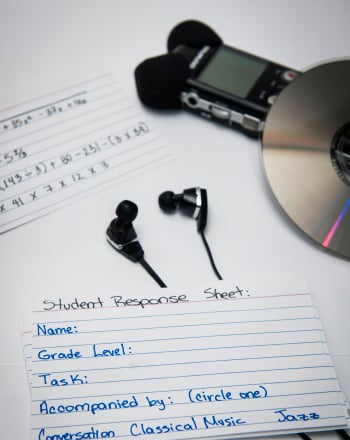 + 35x² - 37x + 46
(143 ÷ 3) + 80 - 231 - (3 x 39)
x 91 x 7 x 12 x 3
Student Response Sheet:
Name:
Grade Level:
Task:
Accompanied by: (circle one)
Conversation Classical Music Jazz